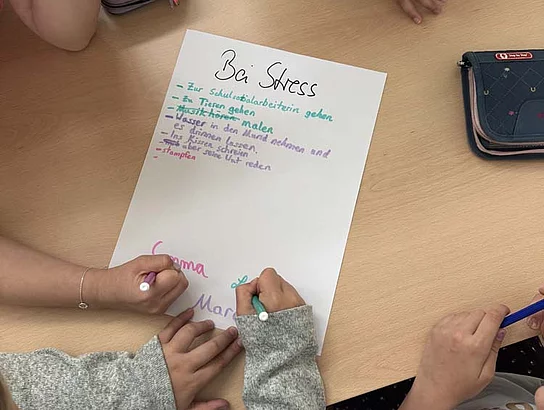 Bei Stress
- Zur Schulsozialarbeiterin gehen
- Zu Tieren gehen
- Musik hören malen
- Wasser in den Mund nehmen und
es drinnen lassen.
- Ins Kissen schreien
- über seine Wut reden
- stampfen
-
Emma
Mar